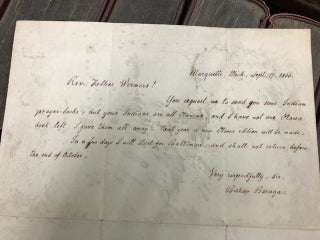 Marquette, Mich. Sept. 17. 1866.
Rev. Father Wermers!
You request me to send you some Indian
prayer-books; but your Indians are all Otawas, and I have not one Otawa
book left. I gave them all away. Next year a new Otawa edition will be made.
In a few days I will start for Baltimore, and shall not return before
the end of October.
Very respectfully, Sir,
Bishop Baraga.